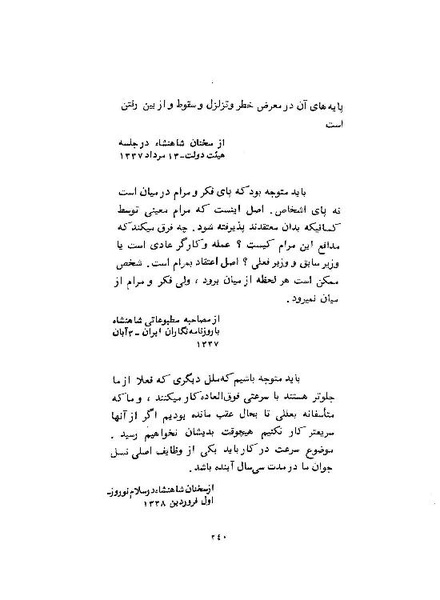 پایه‌های آن در معرض خطر و تزلزل و سقوط و از بین رفتن
است
از سخنان شاهنشاه در جلسه
هیئت دولت-۱۳ مرداد ۱۳۳۷
باید متوجه بود که پای فکر و مرام در میان است
نه پای اشخاص. اصل اینست که مرام معینی توسط
کسانیکه بدان معتقدند پذیرفته شود. چه فرق میکند که
مدافع این مرام کیست؟ عمله و کارگر عادی است یا
وزیر سابق و وزیر فعلی؟ اصل اعتقاد بمرام است. شخص
ممکن است هر لحظه از میان برود، ولی فکر و مرام از
میان نمیرود.
از مصاحبه مطبوعاتی شاهنشاه
با روزنامه‌نگاران ایران - ۳ آبان
۱۳۳۷
باید متوجه باشیم که ملل دیگری که فعلا از ما
جلوتر هستند با سرعتی فوق‌العاده کار میکنند، و ما که
متأسفانه بعللی تا بحال عقب مانده بودیم اگر از آنها
سریعتر کار نکنیم هیچوقت بدیشان نخواهیم رسید.
موضوع سرعت در کار باید یکی از وظایف اصلی نسل
جوان ما در مدت سی سال آینده باشد.
از سخنان شاهنشاه در سلام نوروز-
اول فروردین ۱۳۳۸
۲۴۰